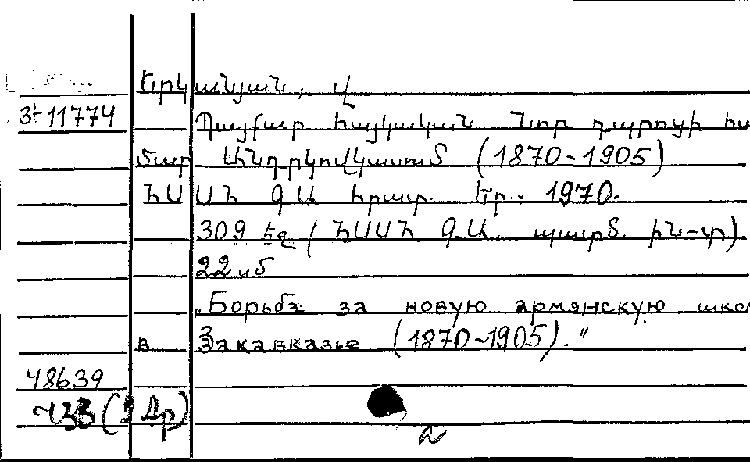 Երկանյան, Վ.
3÷11774 Պայքար հայկական նոր դպրոցի հա
մար Անդրկովկասում (1870-1905)
ՀՍՍՀ ԳԱ հրատ. Եր., 1970.
309 էջ (ՀՍՍՀ ԳԱ պատմ. ին-տ)
22 սմ
"Борьба за новую армянскую шко
в Закавказье (1870-1905)."
48639
(2 Հр)
a